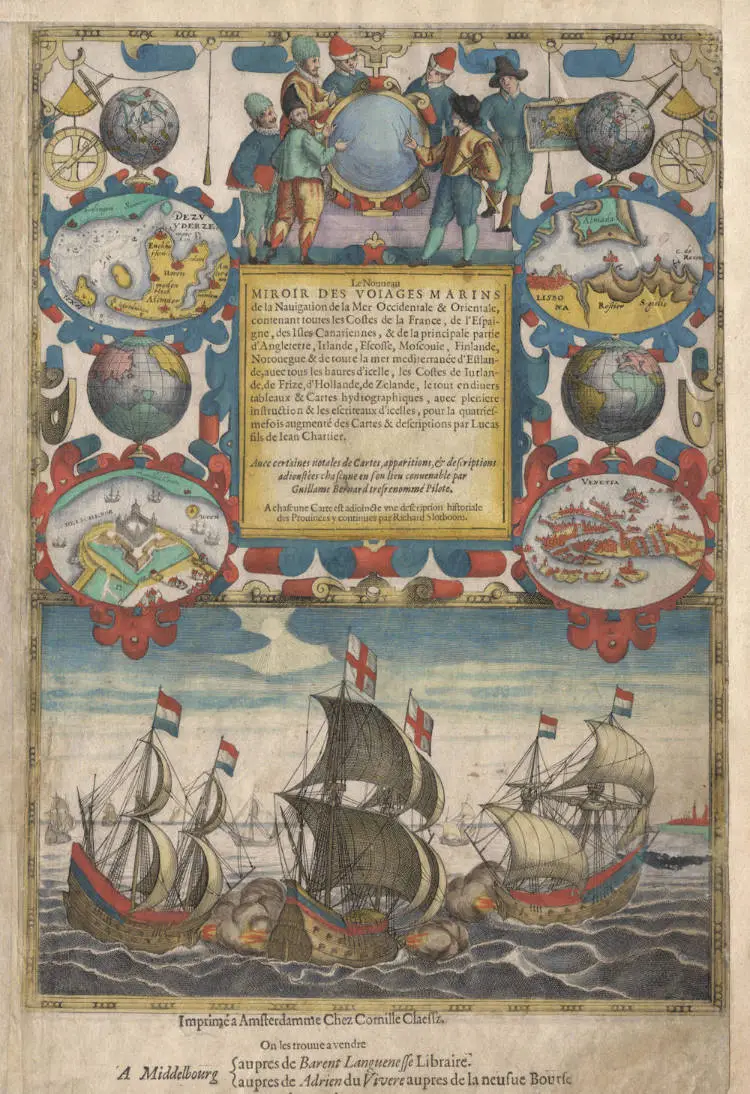 DEZV
YDERZE.
Enchuy
sen
Horen
meden
blick
TEXEL
Almada
C. de
LISBO
NA
Le Nouueau
MIROIR DES VOIAGES MARINS
de la Nauigation de la Mer Occidentale & Orientale,
contenant toutes les Costes de la France, de l'Espai-
gne, des Isles Canariennes, & de la principale partie
d'Angleterre, Irlande, Escosse, Moscouie, Finlande,
Norouegue & de toute la mer mediterranée d'Eistlan-
de, auec tous les haures d'icelle, les Costes de Iutlan-
de, de Frize, d'Hollande, de Zelande, le tout en diuers
tableaux & Cartes hydrographiques, auec pleniere
instruction & les escriteaux d'icelles, pour la quatries-
mefois augmenté des Cartes & descriptions par Lucas
fils de Iean Chartier.
Auec certaines notales de Cartes, apparitions, & descriptions
adioustées chascune en son lieu conuenable par
Guillame Bernard tresrenommé Pilote.
A chascune Carte est adioincte vne description historiale
des Prouinces y contenues par Richard Slotboom.
VENETIA
Imprimé a Amsterdamme Chez Cornille Claessz.
On les trouue a vendre
A Middelbourg
aupres de Barent Languenesse Libraire.
aupres de Adrien du Vivere aupres de la neufue Bourse